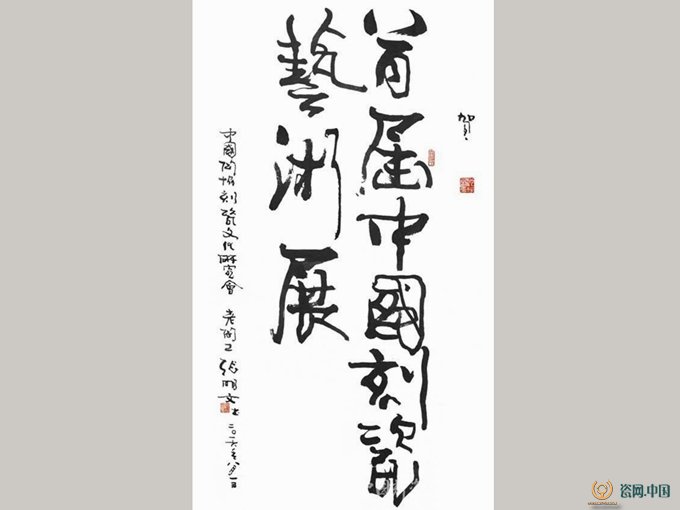 賀
首届中國刻瓷
藝術展
中國陶瓷刻瓷文化研究會 老陶工 張明文书 二〇一六年八月一日
瓷网.中国